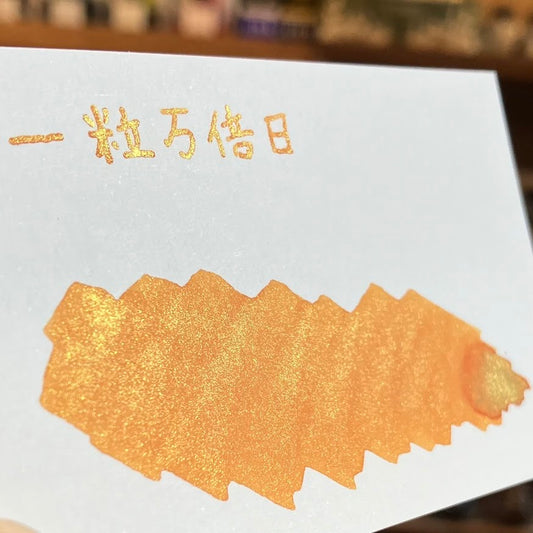 一粒万倍日